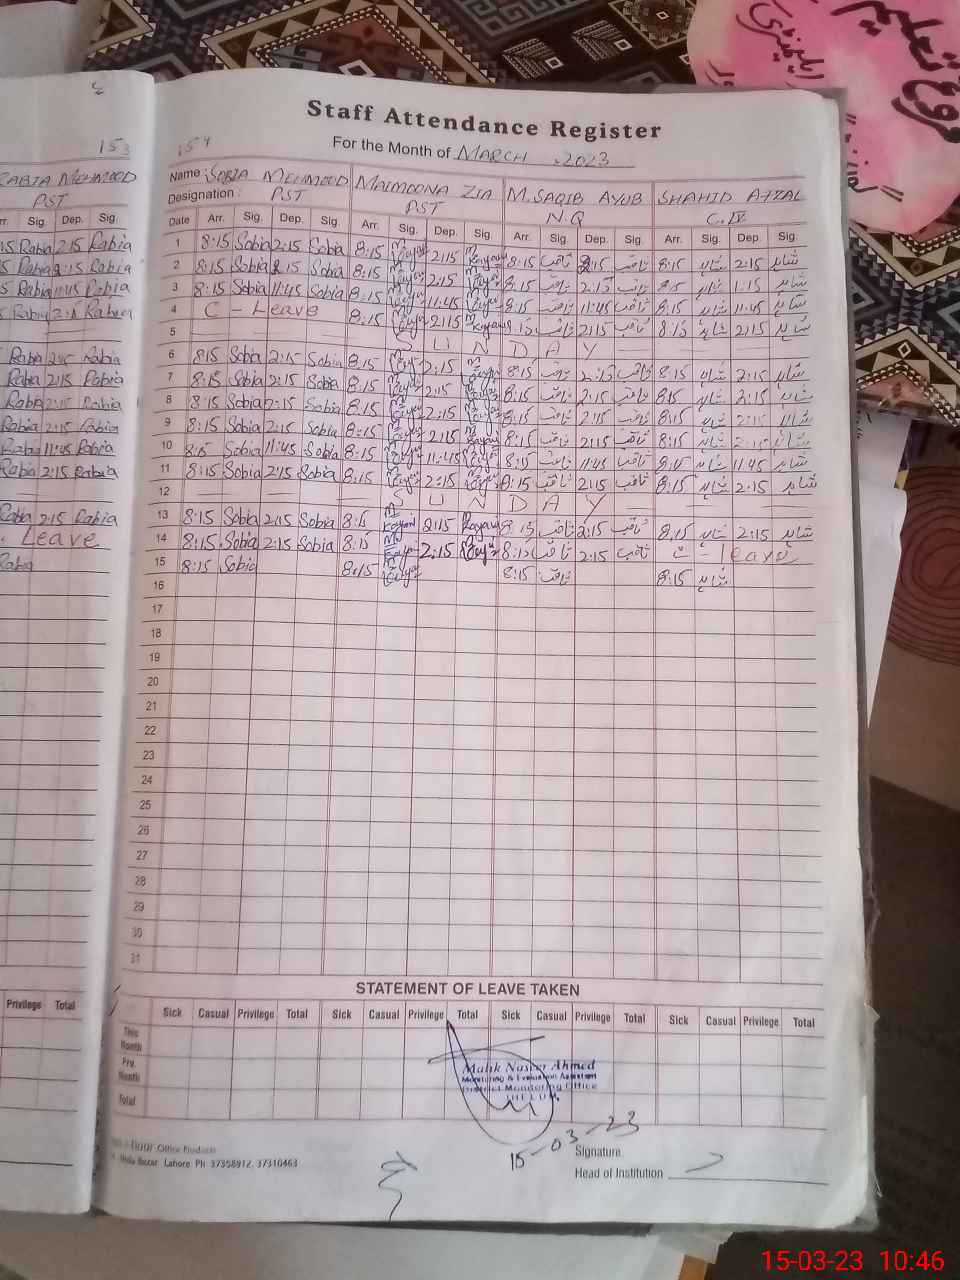 153
RABIA MEHMOOD
PST
Arr. Sig. Dep. Sig
Rabia 2:15 Rabia
Rabia 2:15 Rabia
Rabia 11:45 Rabia
Rabia 2:15 Rabia
Rabia 2:15 Rabia
Rabia 2:15 Rabia
Rabia 2:15 Rabia
Rabia 2:15 Rabia
Rabia 11:45 Rabia
Rabia 2:15 Rabia
Rabia 2:15 Rabia
Leave
Rabia
Privilege Total
154
Staff Attendance Register
For the Month of MARCH, 2023
Name SOBIA MEHMOOD MAIMOONA ZIA M. SAQIB AYUB SHAHID AFZAL
Designation: PST PST N.Q C.IV
Date Arr. Sig. Dep. Sig. Arr. Sig. Dep. Sig. Arr. Sig. Dep. Sig. Arr. Sig. Dep. Sig.
1 8:15 Sobia 2:15 Sobia 8:15 2:15 8:15 ثاقب 2:15 ثاقب 8:15 شاہد 2:15 شاہد
2 8:15 Sobia 2:15 Sobia 8:15 2:15 8:15 ثاقب 2:15 ثاقب 8:15 شاہد 1:15 شاہد
3 8:15 Sobia 11:45 Sobia 8:15 11:45 8:15 ثاقب 11:45 ثاقب 8:15 شاہد 11:45 شاہد
4 C - Leave 8:15 2:15 8:15 ثاقب 2:15 ثاقب 8:15 شاہد 2:15 شاہد
5 SUNDAY
6 8:15 Sobia 2:15 Sobia 8:15 2:15 8:15 ثاقب 2:15 ثاقب 8:15 شاہد 2:15 شاہد
7 8:15 Sobia 2:15 Sobia 8:15 2:15 8:15 ثاقب 2:15 ثاقب 8:15 شاہد 2:15 شاہد
8 8:15 Sobia 2:15 Sobia 8:15 2:15 8:15 ثاقب 2:15 ثاقب 8:15 شاہد 2:15 شاہد
9 8:15 Sobia 2:15 Sobia 8:15 2:15 8:15 ثاقب 2:15 ثاقب 8:15 شاہد 2:15 شاہد
10 8:15 Sobia 11:45 Sobia 8:15 11:45 8:15 ثاقب 11:45 ثاقب 8:15 شاہد 11:45 شاہد
11 8:15 Sobia 2:15 Sobia 8:15 2:15 8:15 ثاقب 2:15 ثاقب 8:15 شاہد 2:15 شاہد
12 SUNDAY
13 8:15 Sobia 2:15 Sobia 8:15 2:15 8:15 ثاقب 2:15 ثاقب 8:15 شاہد 2:15 شاہد
14 8:15 Sobia 2:15 Sobia 8:15 2:15 8:15 ثاقب 2:15 ثاقب C - leave
15 8:15 Sobia 8:15 8:15 ثاقب 8:15 شاہد
16
17
18
19
20
21
22
23
24
25
26
27
28
29
30
31
STATEMENT OF LEAVE TAKEN
Sick Casual Privilege Total Sick Casual Privilege Total Sick Casual Privilege Total Sick Casual Privilege Total
This Month
Prv. Month
Total
Malik Naseer Ahmed
Monitoring & Evaluation Assistant
District Monitoring Office
JHELUM
15-03-23
Signature
Head of Institution
Office Products
Bazar, Lahore Ph: 37358912, 37310463
15-03-23 10:46